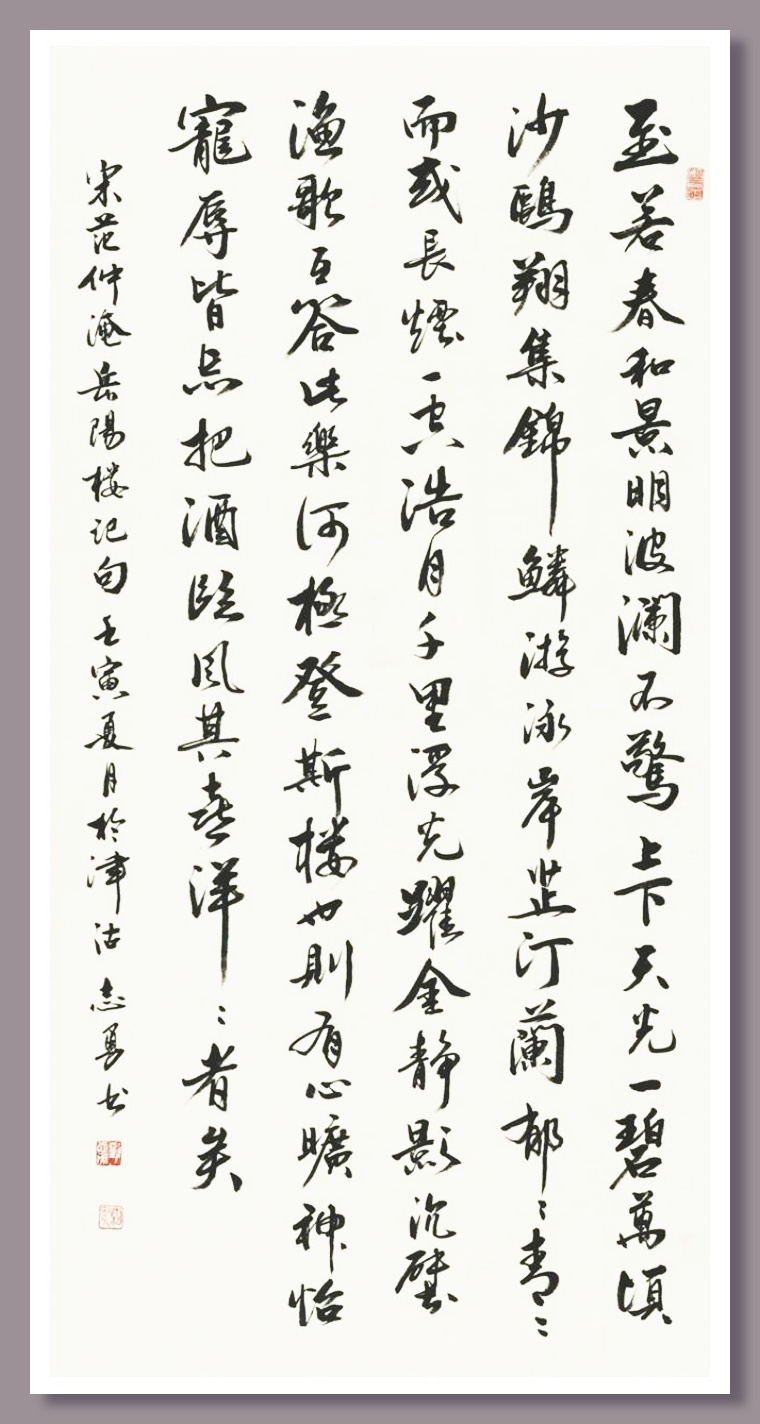 至若春和景明波瀾不驚上下天光一碧萬頃
沙鷗翔集錦鱗游泳岸芷汀蘭郁〻青〻
而或長煙一空浩月千里浮光躍金静影沉璧
漁歌互答此樂何極登斯楼也則有心曠神怡
寵辱皆忘把酒臨風其喜洋〻者矣
宋范仲淹岳陽楼記句壬寅夏月於津沽志勇書